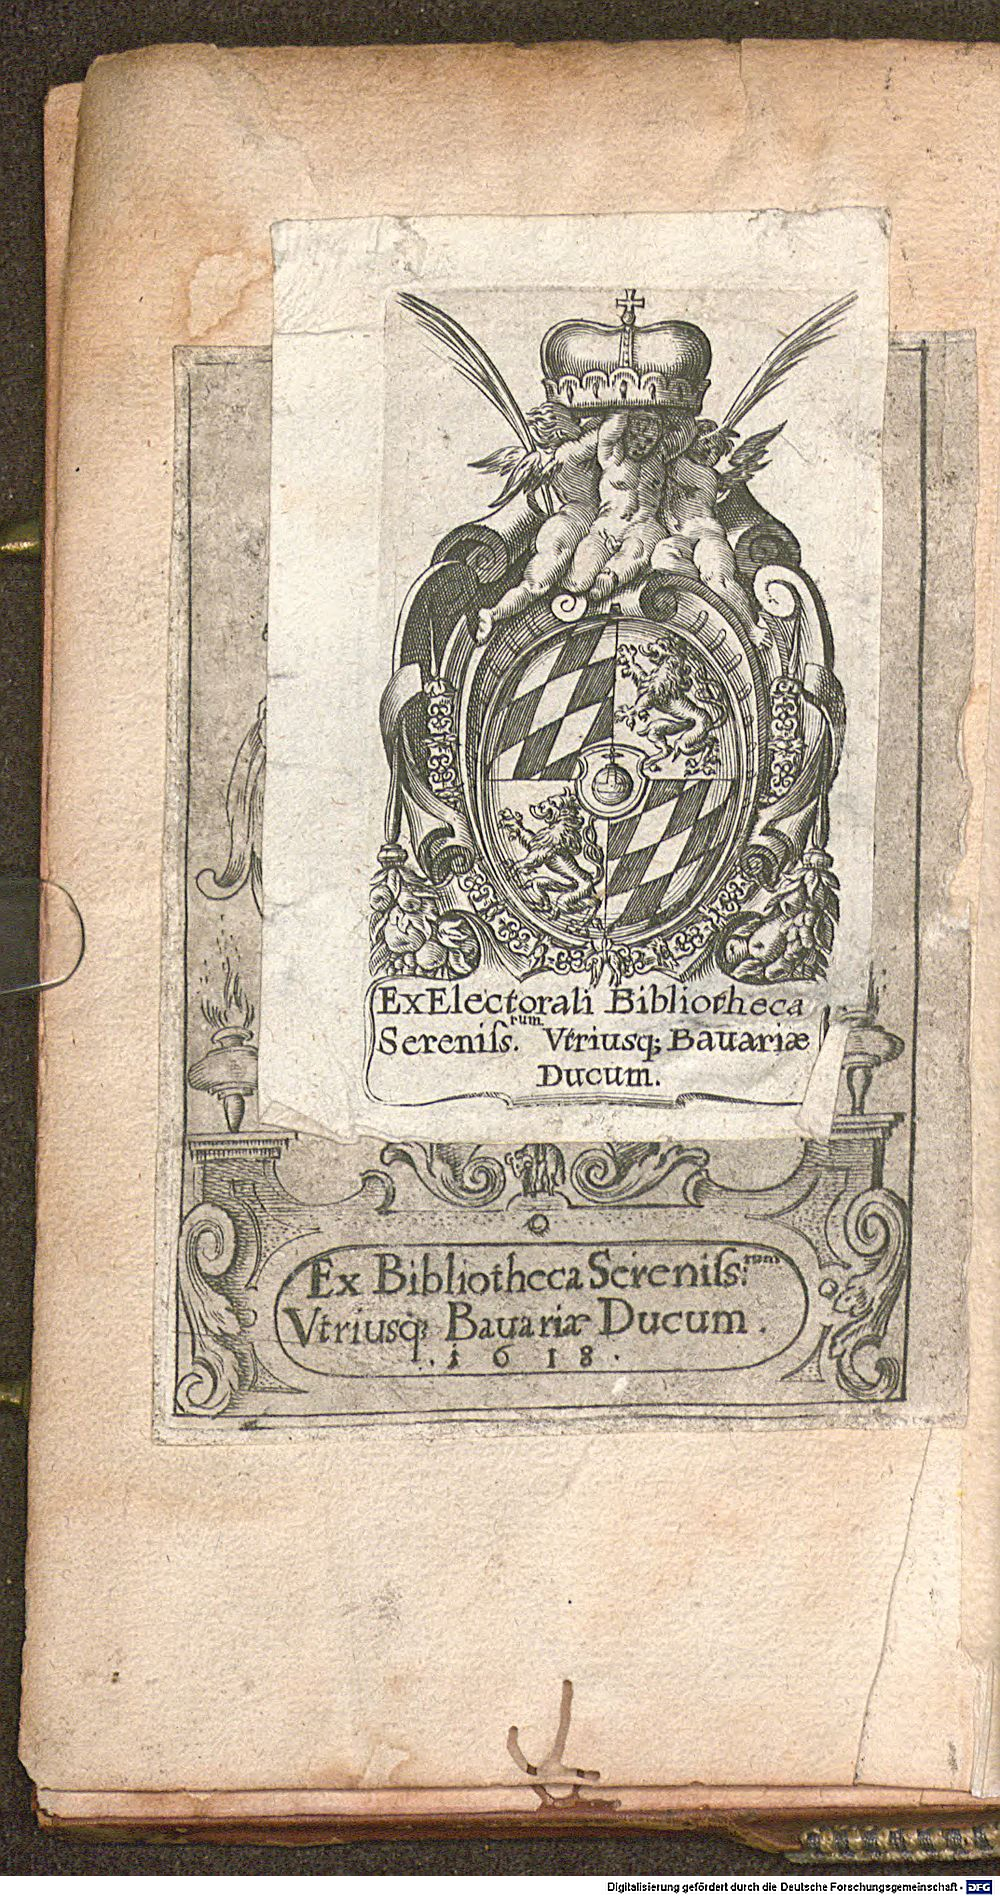 Ex Electorali Bibliotheca
Sereniſs.rum Vtriusq; Bauariæ
Ducum.
Ex Bibliotheca Sereniſs:rum
Vtriusq; Bauariæ Ducum.
.1618.
Digitalisierung gefördert durch die Deutsche Forschungsgemeinschaft - DFG